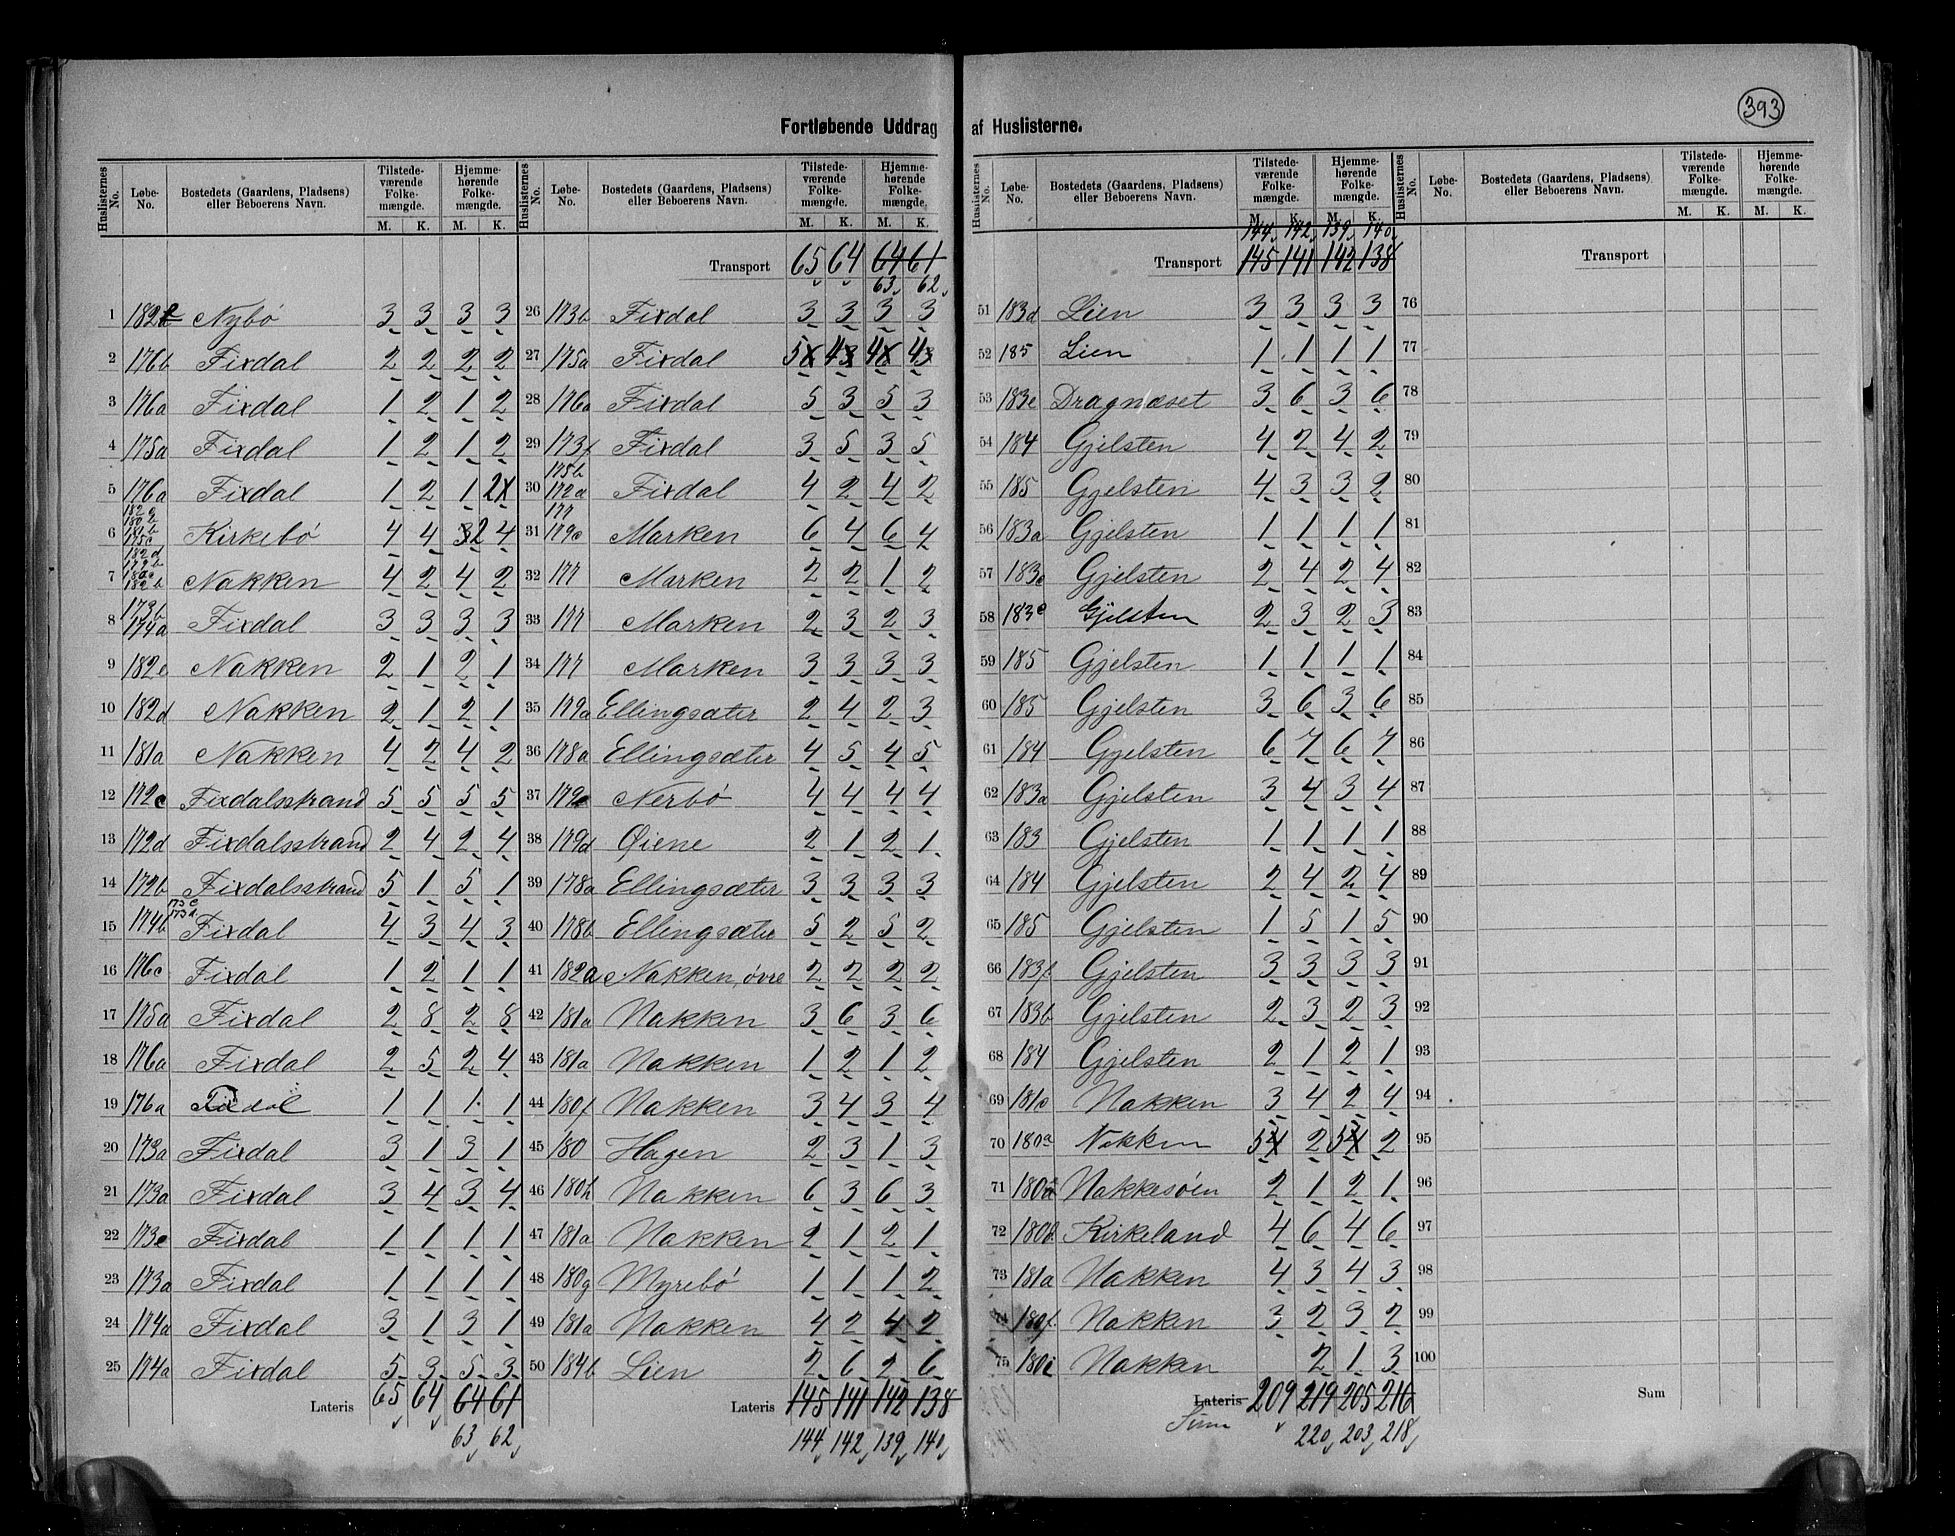 393
Fortløbende Uddrag af Huslisterne.
Huslisternes No. | Løbe-No. | Bostedets (Gaardens, Pladsens) eller Beboerens Navn. | Tilstedeværende Folkemængde. M. K. | Hjemmehørende Folkemængde. M. K.
1 182 Nybö 3 3 3 3
2 176b Fixdal 2 2 2 2
3 176a Fixdal 1 2 1 2
4 175a Fixdal 1 2 1 2
5 176a Fixdal 1 2 1 2
6 Kirkebö 4 4 2 4
7 Nakken 4 2 4 2
8 173b 174a Fixdal 3 3 3 3
9 182e Nakken 2 1 2 1
10 182d Nakken 2 1 2 1
11 181a Nakken 4 2 4 2
12 172c Fixdalsstrand 5 5 5 5
13 172d Fixdalsstrand 2 4 2 4
14 172b Fixdalsstrand 5 1 5 1
15 174b 173c 173d Fixdal 4 3 4 3
16 176c Fixdal 1 2 1 1
17 175a Fixdal 2 8 2 8
18 176a Fixdal 2 5 2 4
19 176a Fixdal 1 1 1 1
20 173a Fixdal 3 1 3 1
21 173a Fixdal 3 4 3 4
22 173e Fixdal 1 1 1 1
23 173a Fixdal 1 1 1 1
24 174a Fixdal 3 1 3 1
25 174a Fixdal 5 3 5 3
Lateris 65 64 64 61
63 62
Huslisternes No. | Løbe-No. | Bostedets (Gaardens, Pladsens) eller Beboerens Navn. | Tilstedeværende Folkemængde. M. K. | Hjemmehørende Folkemængde. M. K.
Transport 65 64 64 61
63 62
26 173b Fixdal 3 3 3 3
27 175a Fixdal 5 4 4 4
28 176a Fixdal 5 3 5 3
29 173f Fixdal 3 5 3 5
30 175b 172a Fixdal 4 2 4 2
31 177 179c Marken 6 4 6 4
32 177 Marken 2 2 1 2
33 177 Marken 2 3 2 3
34 177 Marken 3 3 3 3
35 179a Ellingsæter 2 4 2 3
36 178a Ellingsæter 4 5 4 5
37 179e Nerbö 4 4 4 4
38 179d Øiene 2 1 2 1
39 178a Ellingsæter 3 3 3 3
40 178b Ellingsæter 5 2 5 2
41 182a Nakken, övre 2 2 2 2
42 181a Nakken 3 6 3 6
43 181a Nakken 1 2 1 2
44 180f Nakken 3 4 3 4
45 180 Hagen 2 3 1 3
46 180h Nakken 6 3 6 3
47 181a Nakken 2 1 2 1
48 180g Myrebö 1 1 1 2
49 181a Nakken 4 2 4 2
50 184b Lien 2 6 2 6
Lateris 145 141 142 138
144 142 139 140
Huslisternes No. | Løbe-No. | Bostedets (Gaardens, Pladsens) eller Beboerens Navn. | Tilstedeværende Folkemængde. M. K. | Hjemmehørende Folkemængde. M. K.
144 142 139 140
Transport 145 141 142 138
51 183d Lien 3 3 3 3
52 185 Lien 1 1 1 1
53 183e Dragnæset 3 6 3 6
54 184 Gjelsten 4 2 4 2
55 185 Gjelsten 4 3 3 2
56 183a Gjelsten 1 1 1 1
57 183c Gjelsten 2 4 2 4
58 183c Gjelsten 2 3 2 3
59 185 Gjelsten 1 1 1 1
60 185 Gjelsten 3 6 3 6
61 184 Gjelsten 6 7 6 7
62 183a Gjelsten 3 4 3 4
63 183 Gjelsten 1 1 1 1
64 184 Gjelsten 2 4 2 4
65 185 Gjelsten 1 5 1 5
66 183f Gjelsten 3 3 3 3
67 183b Gjelsten 2 3 2 3
68 184 Gjelsten 2 1 2 1
69 181 Nakken 3 4 2 4
70 180a Nakken 5 2 5 2
71 180 Nakkesöen 2 1 2 1
72 180 Kirkeland 4 6 4 6
73 181a Nakken 4 3 4 3
74 180f Nakken 3 2 3 2
75 180i Nakken 2 1 3
Lateris 209 219 205 216
Sum 220 203 218
Huslisternes No. | Løbe-No. | Bostedets (Gaardens, Pladsens) eller Beboerens Navn. | Tilstedeværende Folkemængde. M. K. | Hjemmehørende Folkemængde. M. K.
Transport
76
77
78
79
80
81
82
83
84
85
86
87
88
89
90
91
92
93
94
95
96
97
98
99
100
Sum